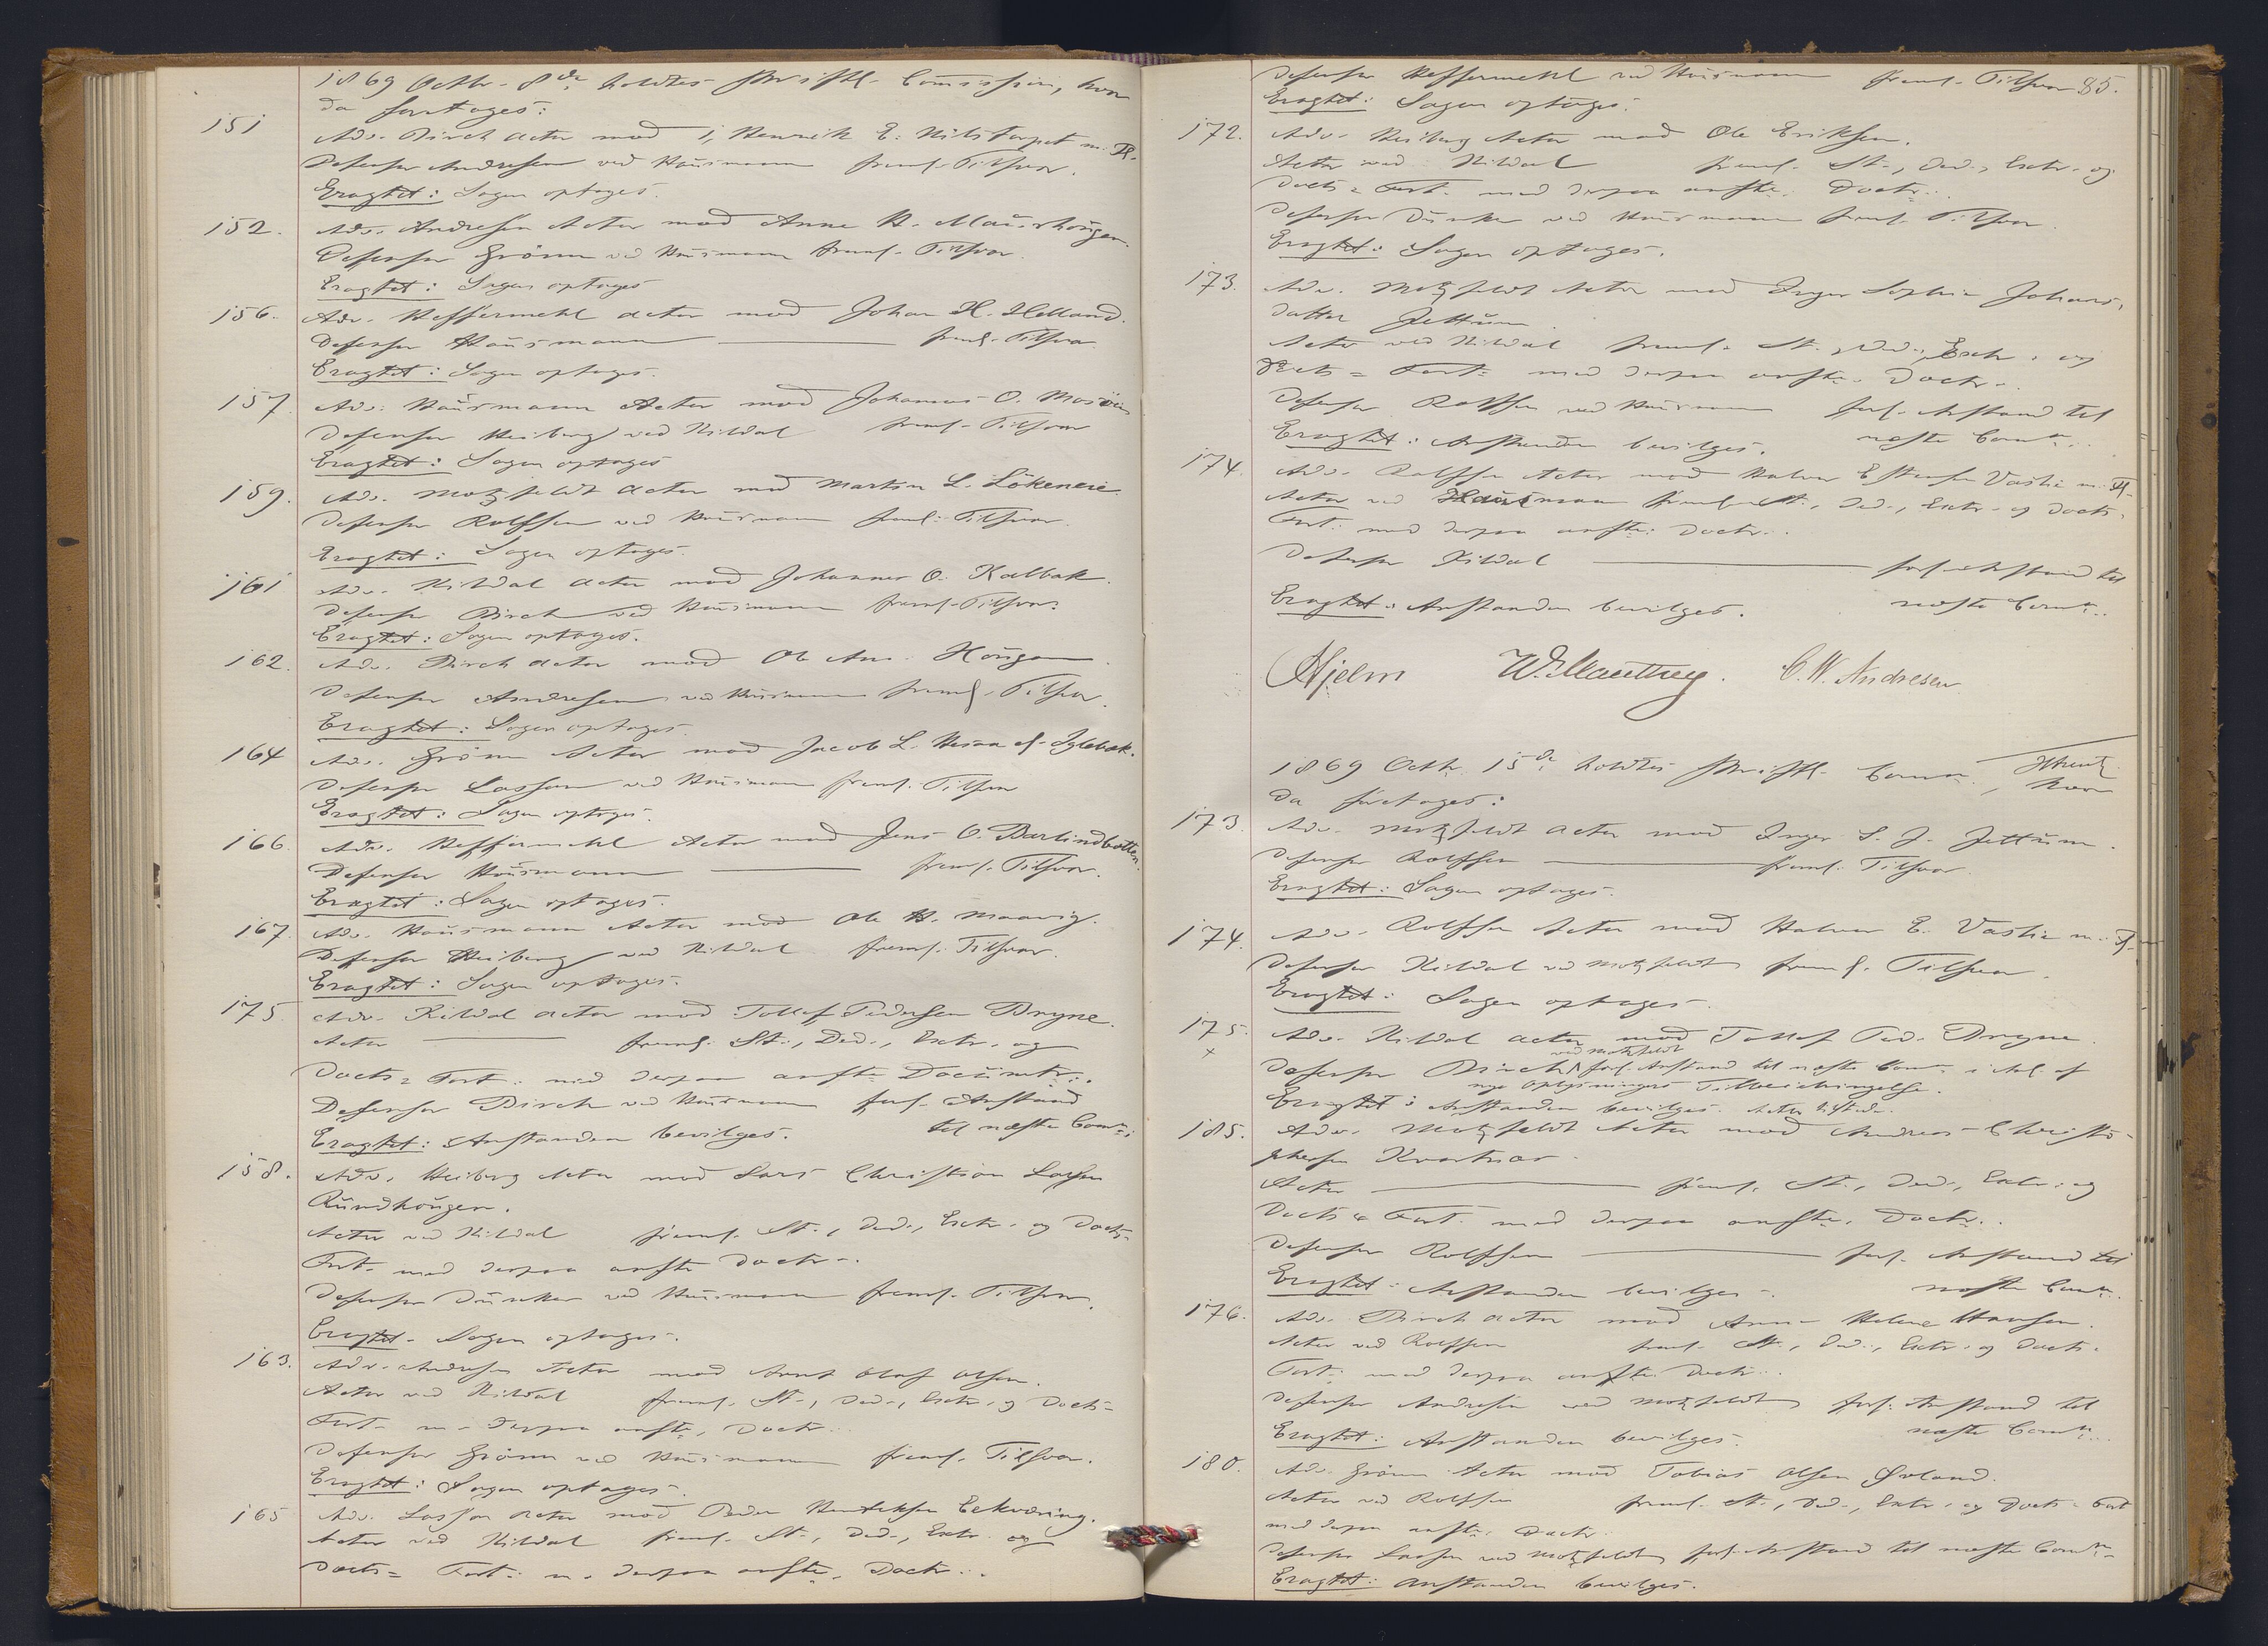 1869 Octbr. 8de holdtes skriftl. Comission, hvor
da foretages:
151 Adv. Birch Actor mod 1, Henrik E. Nilstorpet m. Fl.
Defensor Andresen ved Hausmann freml. Tilsvar.
Eragtet: Sagen optages.
152. Adv. Andresen Actor mod Anne H. Maurhougen.
Defensor Grönn ved Hausmann freml. Tilsvar.
Eragtet: Sagen optages
156. Adv. Heffermehl Actor mod Johan H. Helland.
Defensor Hausmann freml. Tilsvar.
Eragtet: Sagen optages.
157. Adv. Hausmann Actor mod Johannes O. Mosöen
Defensor Heiberg ved Kildal freml. Tilsvar
Eragtet: Sagen optages
159. Adv. Motzfeldt Actor mod Martin L. Lökeneie.
Defensor Rolffsen ved Hausmann freml. Tilsvar.
Eragtet: Sagen optages.
161 Adv. Kildal Actor mod Johannes O. Kalbak.
Defensor Birch ved Hausmann freml. Tilsvar.
Eragtet: Sagen optages.
162. Adv. Birch Actor mod Ole Ans. Hougen.
Defensor Andresen ved Hausmann freml. Tilsvar.
Eragtet: Sagen optages.
164 Adv. Grönn Actor mod Jacob L. Hesaa el. Iglebæk.
Defensor Lasson ved Hausmann freml. Tilsvar
Eragtet: Sagen optages.
166. Adv. Heffermehl Actor mod Jens O. Barlindbotten.
Defensor Hausmann freml. Tilsvar.
Eragtet: Sagen optages.
167. Adv. Hausmann Actor mod Ole H. Maavig.
Defensor Heiberg ved Kildal freml. Tilsvar.
Eragtet: Sagen optages.
175. Adv. Kildal Actor mod Tollef Pedersen Bryne.
Actor freml. St., Ded., Extr. og
Docts= Fort. med derpaa anfte Documtr.
Defensor Birch ved Hausmann forl. Anstand
Eragtet: Anstanden bevilges. til næste Comn.
158. Adv. Heiberg Actor mod Lars Christian Larsen
Rundhougen.
Actor ved Kildal freml. St., Ded., Extr. og Docts=
Fort. med derpaa anfte Doctr.
Defensor Dunker ved Hausmann freml. Tilsvar.
Eragtet. Sagen optages.
163. Adv. Andresen Actor mod Arnt Olaf Olsen.
Actor ved Kildal freml. St., Ded., Extr. og Docts=
Fort. m. derpaa anfte. Doctr.
Defensor Grönn ved Hausmann freml. Tilsvar.
Eragtet: Sagen optages.
165 Adv. Lasson Actor mod Peder Henriksen Eekværing.
Actor ved Kildal freml. St., Ded., Extr. og
Docts= Fort. m. derpaa anfte. Doctr.
Defensor Heffermehl ved Hausmann freml. Tilsvar 85.
Eragtet: Sagen optages.
172. Adv. Heiberg Actor mod Ole Eriksen.
Actor ved Kildal freml. St., Ded., Extr. og
Docts= Fort. med derpaa anfte. Doctr.
Defensor Dunker ved Hausmann freml. Tilsvar
Eragtet: Sagen optages.
173. Adv. Motzfeldt Actor mod Inger Sophie Johans
datter Jettum.
Actor ved Kildal freml. St., Ded., Extr. og
Docts= Fort. med derpaa anfte. Doctr.
Defensor Rolffsen ved Hausmann forl. Anstand til
Eragtet: Anstanden bevilges. næste Comn.
174. Adv. Rolffsen Actor mod Halvor E. Vaslie m. Fl.
Actor ved Hausmann freml. St., Ded., Extr. og Docts=
Fort. med derpaa anfte. Doctr.
Defensor Kildal forl. Anstand til
Eragtet: Anstanden bevilges. næste Comn.
Hjelm W. Manthey. C. W. Andresen
1869 Octbr. 15de holdtes skriftl. Comn., hvor
da foretages:
173. Adv. Motzfeldt Actor mod Inger S. J. Jettum.
Defensor Rolffsen freml. Tilsvar
Eragtet: Sagen optages.
174. Adv. Rolffsen Actor mod Halvor E. Vaslie m. Fl.
Defensor Kildal ved Motzfeldt freml. Tilsvar.
Eragtet: Sagen optages.
175. Adv. Kildal Actor mod Tollef Ped. Bryne.
x Defensor Birch ved Motzfeldt forl. Anstand til næste Comn. i Anl. af
nye Oplysningers Tilveiebringelse.
Eragtet: Anstanden bevilges. Actor tilstede.
185. Adv. Motzfeldt Actor mod Andreas Christo-
phersen Kvartnar.
Actor freml. St., Ded., Extr. og
Docts= Fort. med derpaa anfte. Doctr.
Defensor Rolffsen forl. Anstand til
Eragtet: Anstanden bevilges. næste Comn.
176. Adv. Birch Actor mod Anne Helene Hansen.
Actor ved Rolffsen freml. St., Ded., Extr. og Docts=
Fort. med derpaa anfte Doctr.
Defensor Andresen ved Motzfeldt forl. Anstand til
Eragtet: Anstanden bevilges. næste Comn.
180. Adv. Grönn Actor mod Tobias Olsen Övland.
Actor ved Rolffsen freml. St., Ded., Extr. og Docts= Fort
med derpaa anfte. Doctr.
Defensor Lasson ved Motzfeldt forl. Anstand til næste Comn.
Eragtet: Anstanden bevilges.